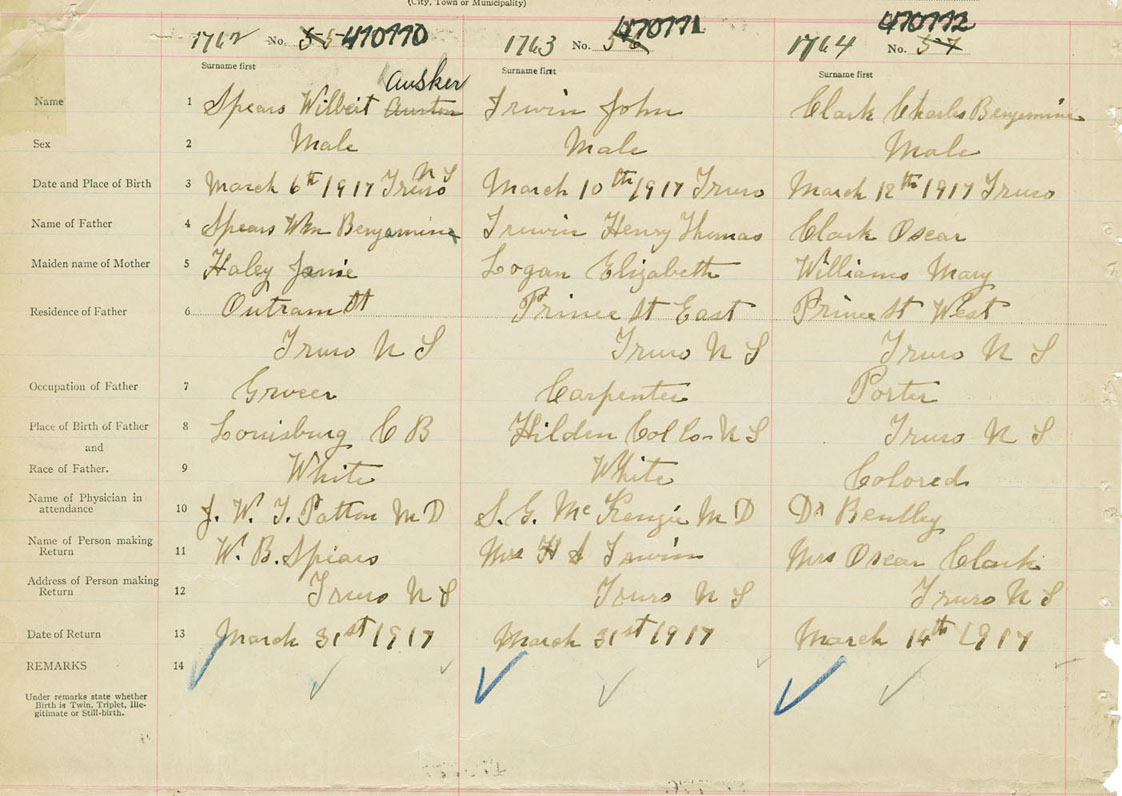 (City, Town or Municipality)
1762 No. 55 470770 1763 No. 56 470771 1764 No. 57 470772
Surname first Surname first Surname first
Ausker
Name 1 Spears Wilbert Austen Irwin John Clark Charles Benjamine
Sex 2 Male Male Male
Date and Place of Birth 3 March 6th 1917 Truro N S March 10th 1917 Truro March 12th 1917 Truro
Name of Father 4 Spears Wm Benjamine Irwin Henry Thomas Clark Oscar
Maiden name of Mother 5 Haley Janie Logan Elizabeth Williams Mary
Residence of Father 6 Outram St Prince St East Prince St West
Truro N S Truro N S Truro N S
Occupation of Father 7 Grocer Carpenter Porter
Place of Birth of Father 8 Louisburg C B Hilden Col Co. N S Truro N S
and
Race of Father. 9 White White Colored
Name of Physician in
attendance 10 J. W. T. Patton M D S. G. McKenzie M D Dr Bentley
Name of Person making
Return 11 W. B. Spears Mrs H S Irwin Mrs Oscar Clark
Address of Person making
Return 12 Truro N S Touro N S Truro N S
Date of Return 13 March 31st 1917 March 31st 1917 March 14th 1917
REMARKS 14
Under remarks state whether
Birth is Twin, Triplet, Ille-
gitimate or Still-birth.